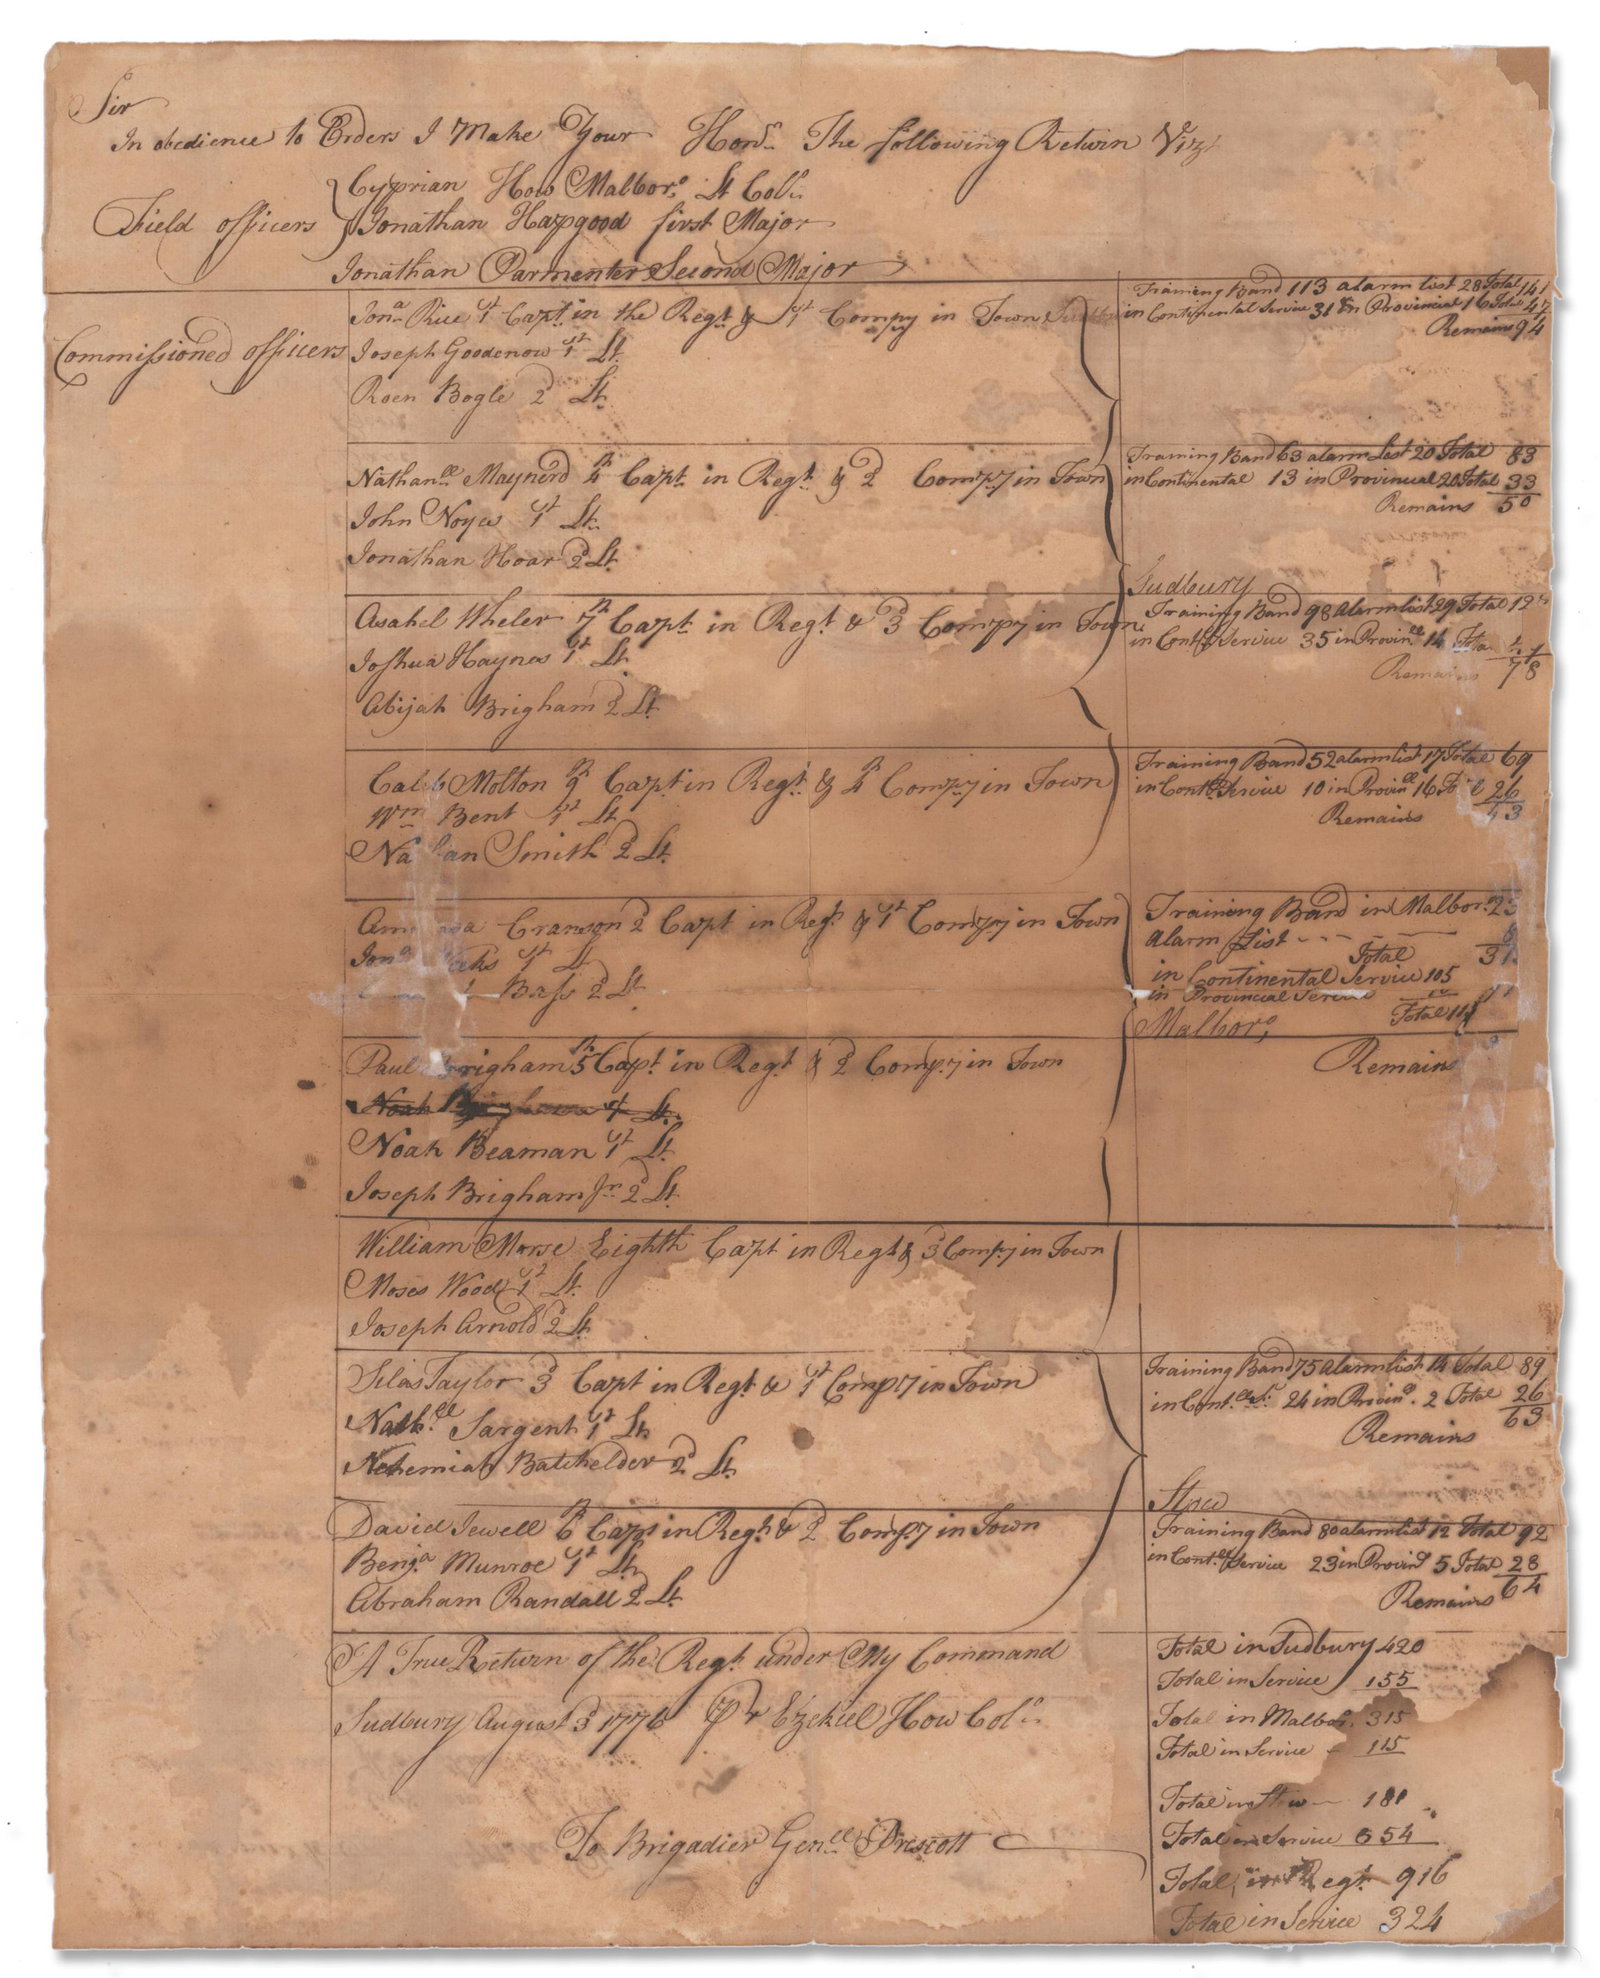 Sir
In obedience to Orders I Make Your Honr. The following Return Vizt
Field officers
Cyprian How Malboro. Lt Coll.
Jonathan Hapgood first Major
Jonathan Parmenter Second Major
Commissioned officers
Jona. Rice 1st Capt. in the Regt. & 1st Compy in Town
Joseph Goodenow 1st Lt.
Roen Bogle 2d Lt.
Training Band 113 alarm list 28 Total 141
in Continental Service 31 & in Provincial 16 Total 47
Remains 94
Nathanll. Maynerd 4th Capt. in Regt. & 2d Compy in Town
John Noyes 1st Lt.
Jonathan Hoar 2d Lt.
Training Band 63 alarm List 20 Total 83
in Continental 13 in Provincial 20 Total 33
Remains 50
Sudbury
Asahel Wheler 7th Capt. in Regt. & 3d Compy in Town
Joshua Haynes 1st Lt.
Abijah Brigham 2d Lt.
Training Band 98 alarm list 29 Total 12
in Contll Service 35 in Provinll 14 Total
Remains 78
Caleb Molton 9th Capt in Regt. & 4th Compy in Town
Wm Bent 1st Lt.
Nathan Smith 2d Lt.
Training Band 52 alarm list 17 Total 69
in Contll Service 10 in Provinll 16 26
Remains 43
Cranson 2d Capt in Regt. & 1st Compy in Town
Jona 1st Lt
Bass 2d Lt
Training Band in Malboro.
Alarm List
Total 31
in Continental Service 105
in Provincial Service
Total 115
Malboro.
Remains
Paul Brigham 5th Capt. in Regt. & 2d Compy in Town
Noah Brigham 1st Lt.
Noah Beaman 1st Lt.
Joseph Brigham Jnr 2d Lt.
William Morse Eighth Capt in Regt & 3d Compy in Town
Moses Wood 1st Lt.
Joseph Arnold 2d Lt.
Silas Taylor 3d Capt in Regt & 1st Compy in Town
Nathll. Sargent 1st Lt.
Nehemiah Batchelder 2d Lt.
Training Band 75 alarm list 14 Total 89
in Contll. Sr. 24 in Provind. 2 Total 26
Remains 63
Stow
David Jewell 6th Capt in Regt. & 2d Compy in Town
Benja Munroe 1st Lt.
Abraham Randall 2d Lt.
Training Band 80 alarm list 12 Total 92
in Contll Service 23 in Provind 5 Total 28
Remains 64
A True Return of the Regt. under My Command
Sudbury August 3d 1776 Pr Ezekiel How Coln.
To Brigadier Genll. Prescott
Total in Sudbury 420
Total in Service 155
Total in Malboro. 315
Total in Service 115
Total in Stow 181
Total in Service 054
Total in Regt. 916
Total in Service 324